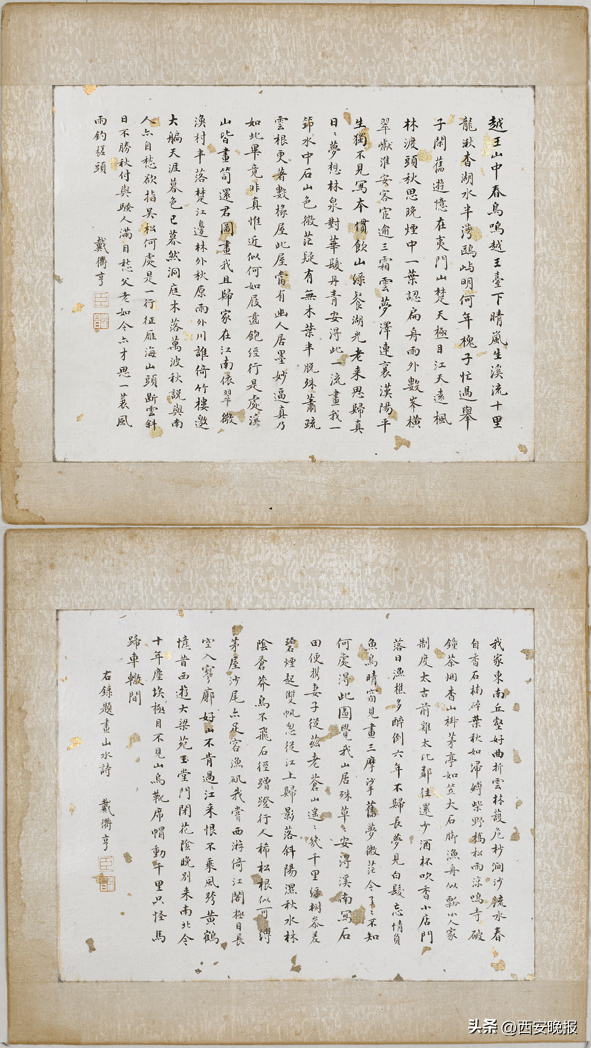 越王山中春鳥鳴越王臺下晴嵐生溪流十里
龍湫香湖水半灣鷗嶼明何年槐子忙過舉
子閑舊遊憶在夷門山楚天極目江天遠楓
林渡頭秋思晚煙中一葉認扁舟雨外數峯橫
翠巘淮安客宦逾三霜雲夢澤連襄漢陽平
生獨不見寫本慣飲山綠餐湖光老来思歸真
日日夢想林泉對華髮丹青安得此一流畫我一
節水中石山色微茫疑有無木葉半脫殊蕭疏
雲根更著數椽屋此屋當有幽人居墨妙逼真乃
如此畢竟非真惟近似何如屐齒飽經行是處溪
山皆畫笥還君圖畫我且歸家在江南依翠微
漁村半落楚江邊林外秋原雨外川誰倚竹樓邀
大艑天涯暮色已蒼然洞庭木落萬波秋說與南
人亦自愁欲指吳松何處是一行征雁海山頭斷雲斜
日不勝秋付與騷人滿目愁父老如今亦才思一蓑風
雨釣槎頭
戴衢亨
我家東南丘壑好曲折雲林護尼杪澗沙鏡水春
自香石楠碎葉秋如掃蟬柴野橋松雨涼鳴寺破
鐘茶烟香山椒茅亭如笠大石腳漁舟似瓢小人家
制度太古前雞犬比鄰往還少酒杯吹香小店門
落日漁樵多醉倒六年不歸長夢見白髮忘情負
魚鳥晴窗見畫三摩挲舊夢微茫今了了不知
何處得此圖覺我山居殊草草安得溪南寫石
田便携妻子從兹老蒼山遙遙幾千里緣樹參差
碧煙起雙帆忽從江上歸影落斜陽濕秋水林
陰蒼莽鳥不飛石徑蹭蹬行人稀松根似可縛
茅屋沙尾亦足容漁磯我嘗西游倚江閣極目長
空入寥廓好山不肯過江来恨不乘風跨黄鶴
憶昔西遊大梁苑玉堂門閉花陰晚別来南北今
十年塵埃極目不見山烏靴席帽動千里只怪馬
蹄車轍間
右錄題畫山水詩 戴衢亨
头条 @西安晚报